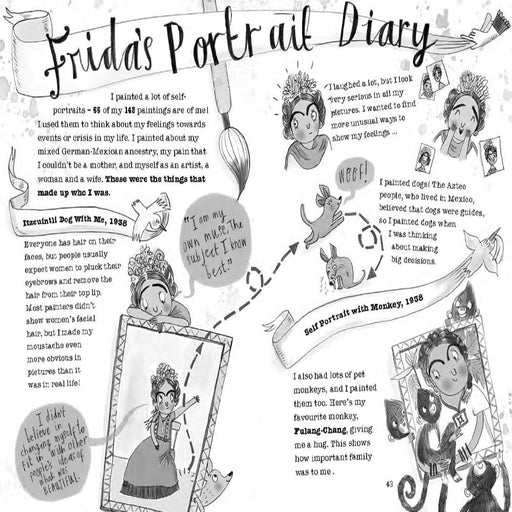 Frida's Portrait Diary
I painted a lot of self-
portraits – 55 of my 143 paintings are of me!
I used them to think about my feelings towards
events or crisis in my life. I painted about my
mixed German-Mexican ancestry, my pain that
I couldn't be a mother, and myself as an artist, a
woman and a wife. These were the things that
made up who I was.
Itzcuintli Dog With Me, 1938
Everyone has hair on their
faces, but people usually
expect women to pluck their
eyebrows and remove the
hair from their top lip.
Most painters didn't
show women's facial
hair, but I made my
moustache even
more obvious in
pictures than it
was in real life!
"I am my
own muse. The
subject I know
best."
I didn't
believe in
changing myself to
fit in with other
people's ideas of
what was
BEAUTIFUL.
I laughed a lot, but I look
very serious in all my
pictures. I wanted to find
more unusual ways to
show my feelings ...
WOOF!
I painted dogs! The Aztec
people, who lived in Mexico,
believed that dogs were guides,
so I painted dogs when
I was thinking
about making
big decisions.
Self Portrait with Monkey, 1938
I also had lots of pet
monkeys, and I painted
them too. Here's my
favourite monkey,
Fulang-Chang, giving
me a hug. This shows
how important family
was to me.
43